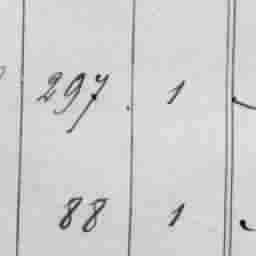 297. 1
88 1